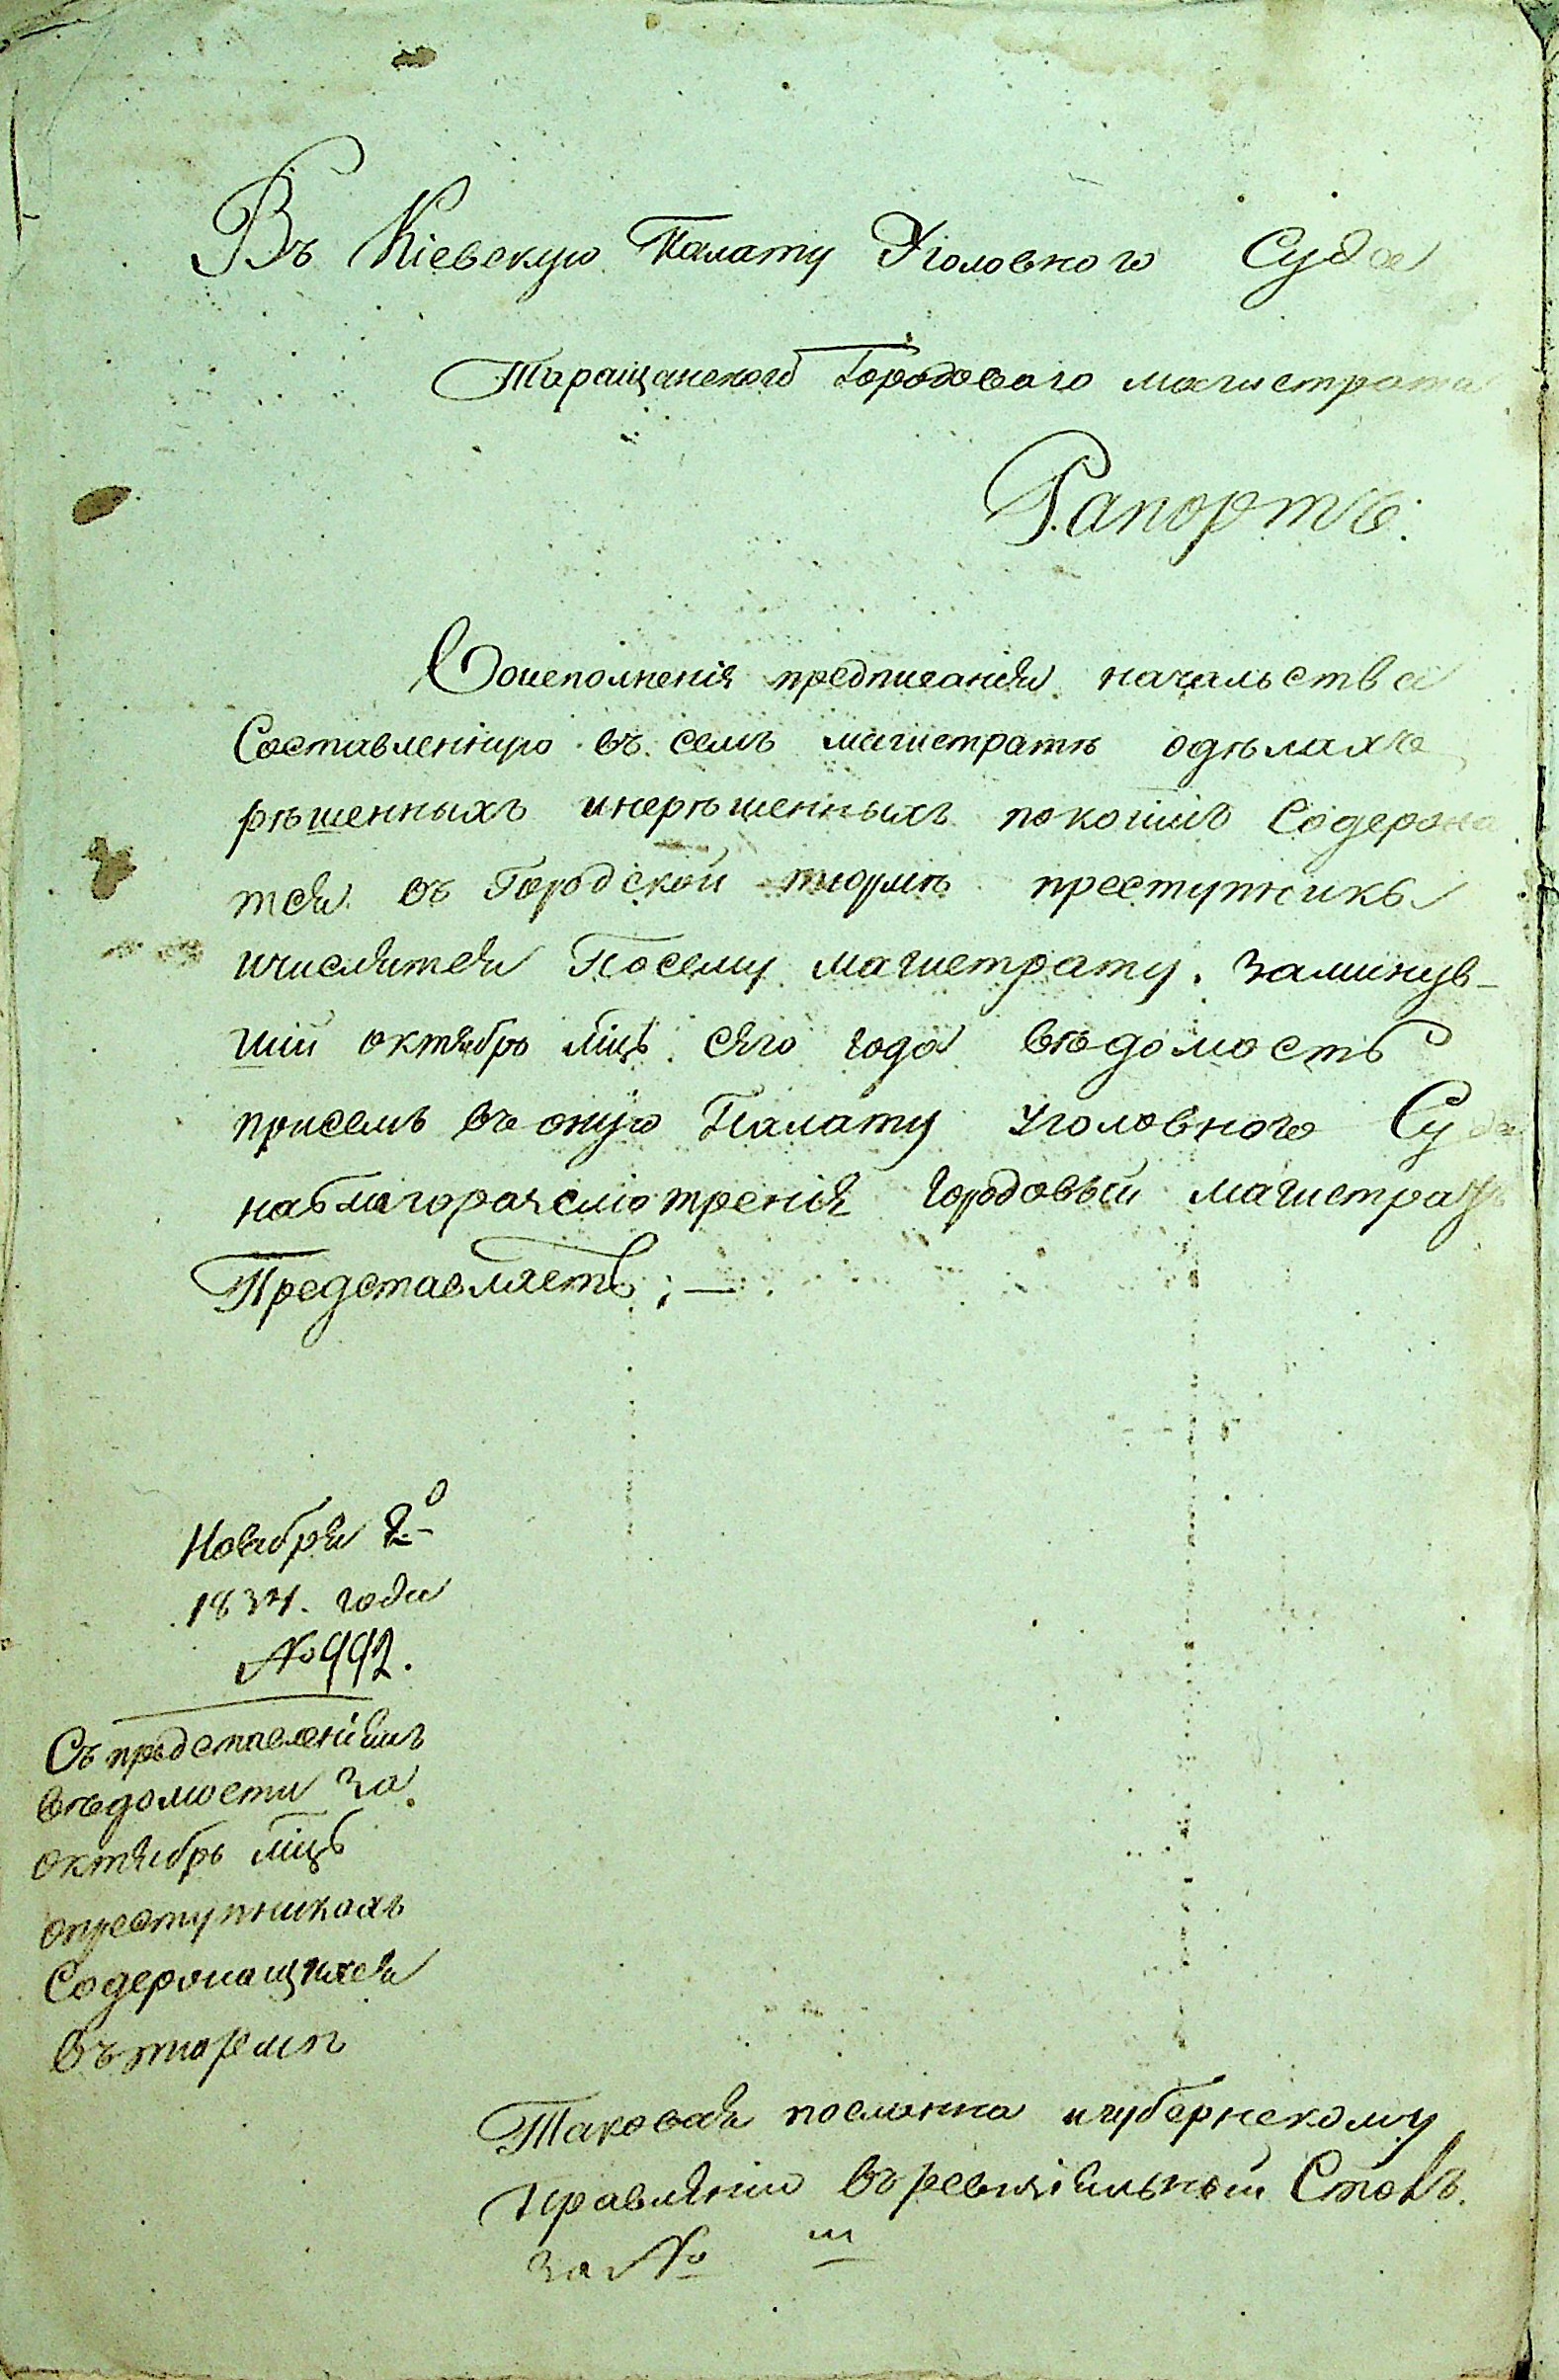 Въ Кіевскую Палату Уголовного Суда
Таращанского Городоваго магистрата
Рапортъ.
Воисполненія предписанія начальства
Составленную въ семъ магистратѣ одѣлахъ
рѣшенныхъ инерѣшенныхъ покоимъ Содержа
тся въ Городской тюрмѣ преступники
ичислятся Посему магистрату. заминув-
шій октябрь мцъ сего года вѣдомость
присемъ въ оную Палату Уголовного Суда
наблагоразсмотреніе Городовый магистратъ
Представляетъ; —
Ноября 2о
1834. года
№992.
Съ представленіемъ
вѣдомости за
октябрь мцъ
опреступникахъ
Содержащихся
въ тюрмѣ
Таковая посланна игубернскому
Правленію въ ревизіяльный Столъ.
за №